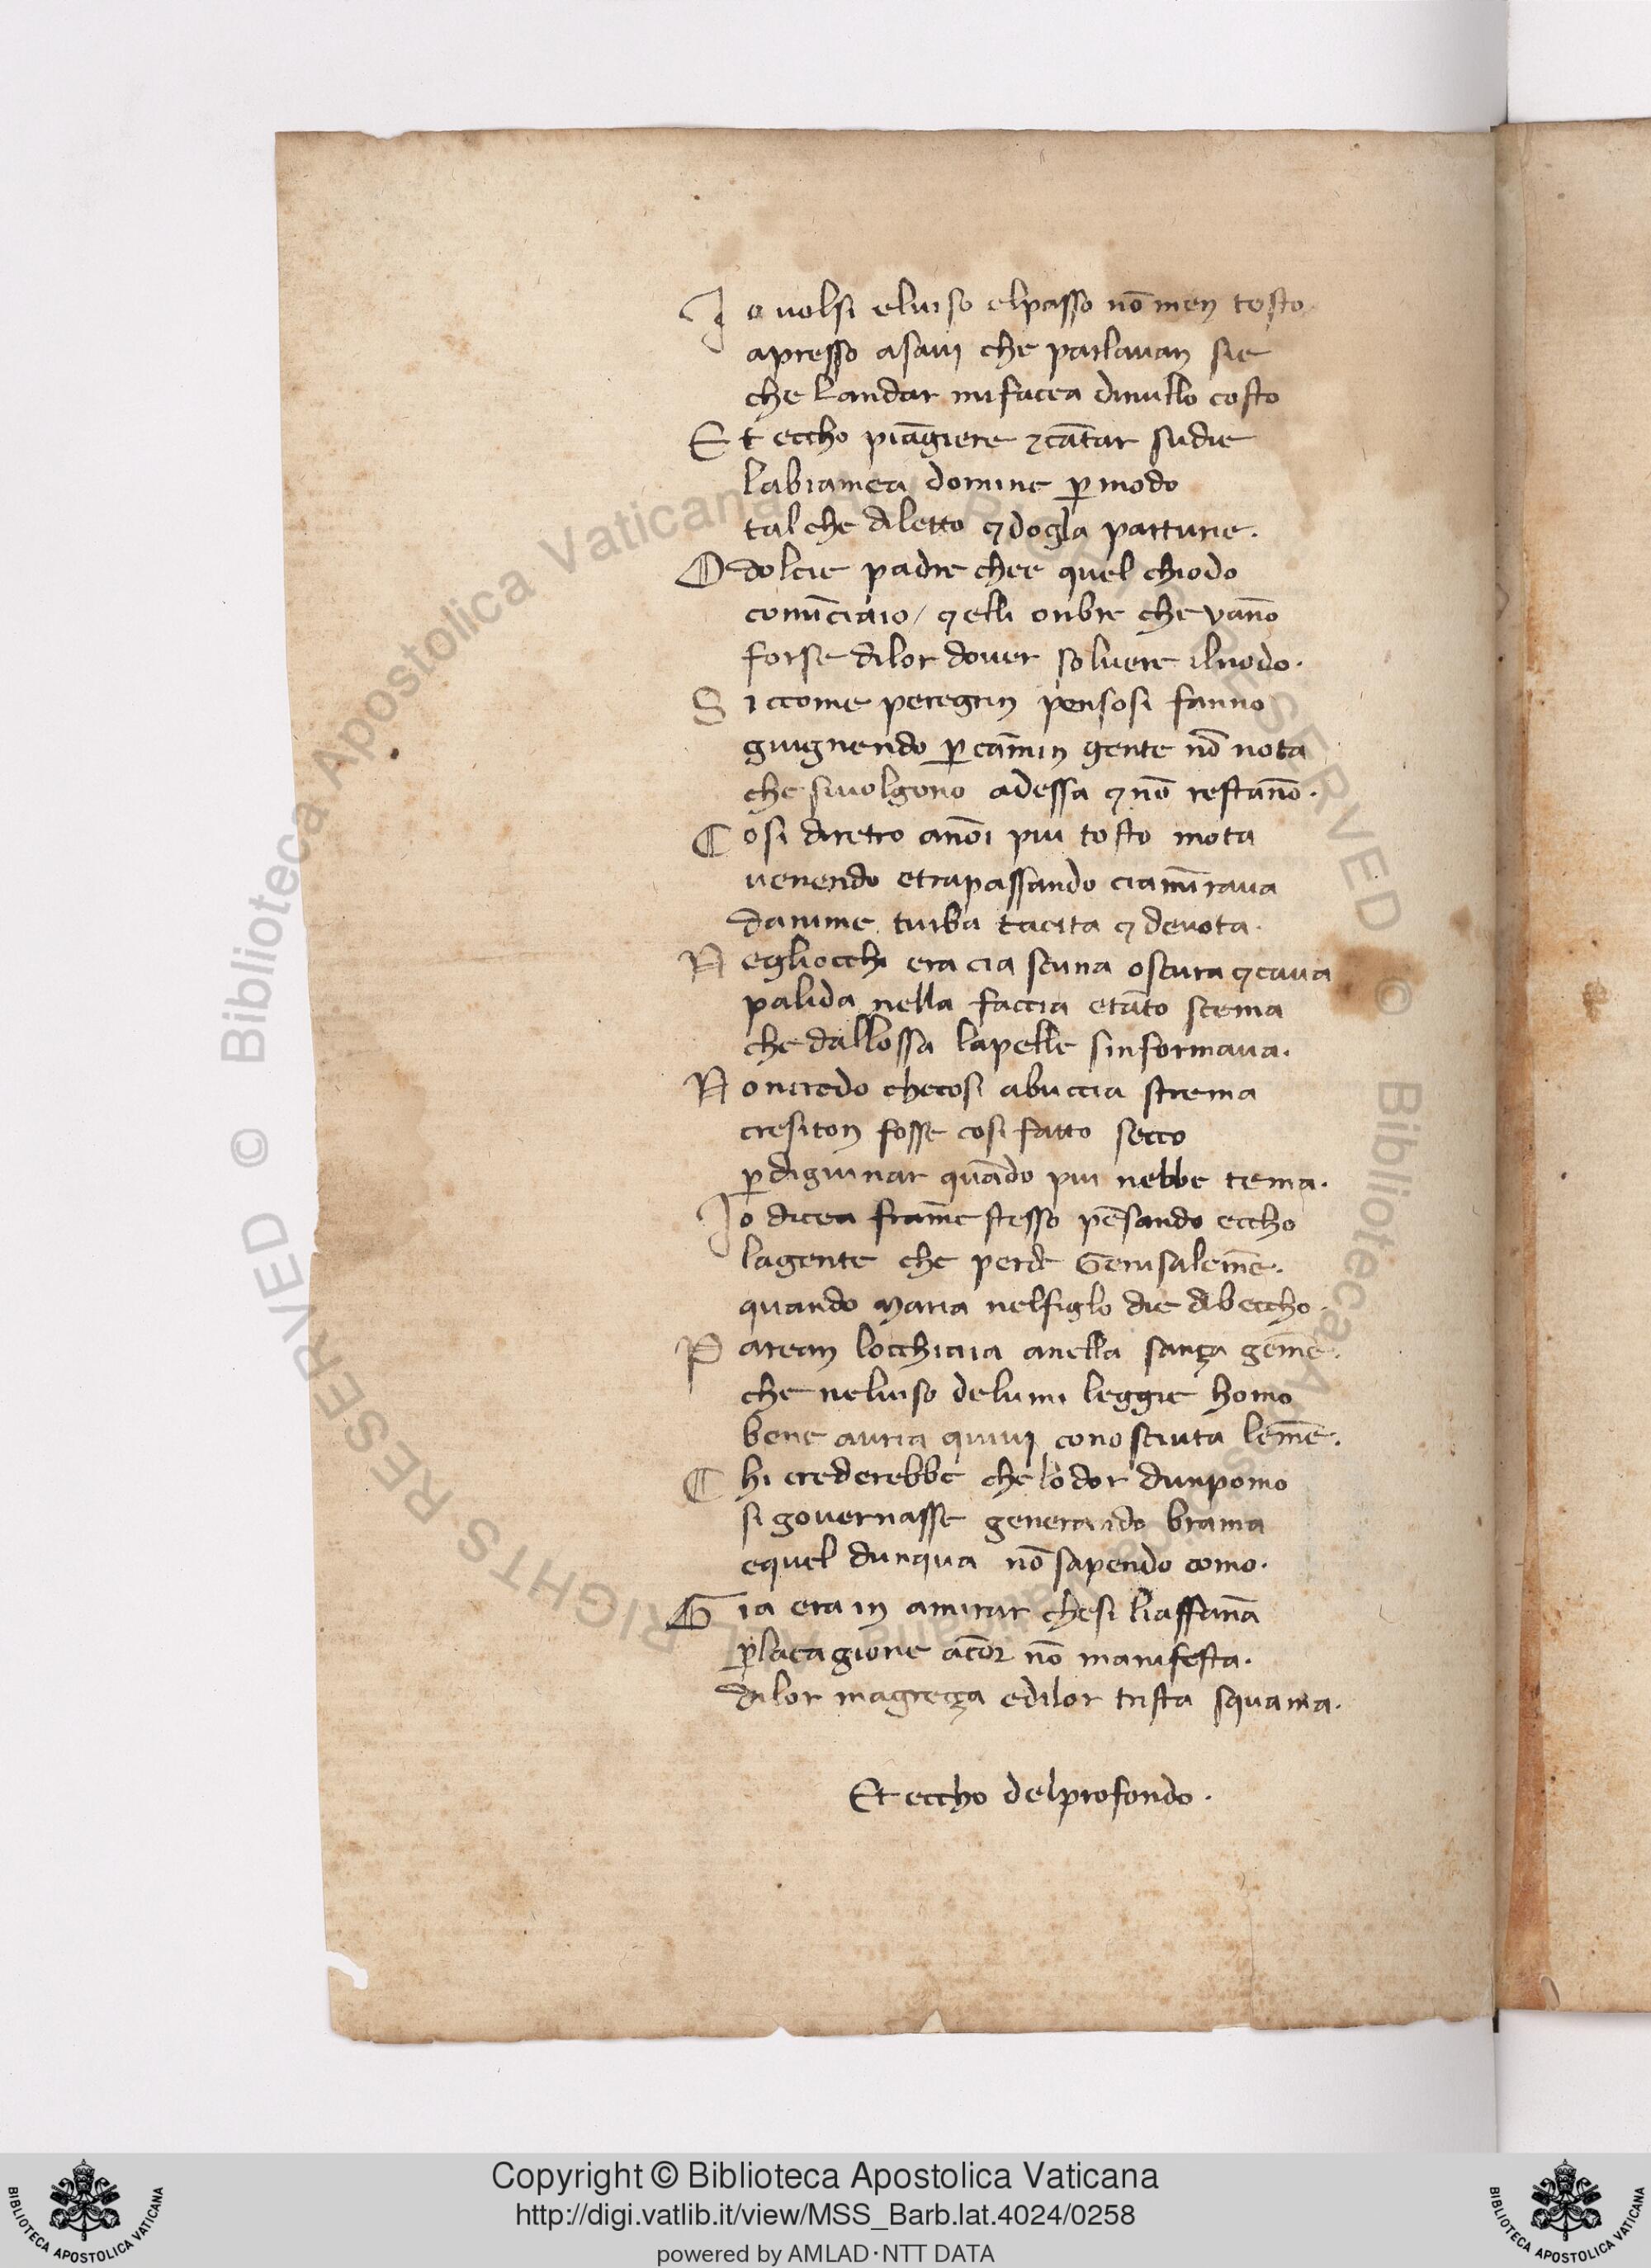 Io uolsi eluiso elpasso nō men tosto
apresso asauj che parlauan sie
che landar mifacea dinullo costo
Et eccho piāgiere ⁊cātar sudie
labiamea domine ꝑ modo
tal che diletto ⁊ dogla parturie.
O dolcie padre chee quel chiodo
comīciaio / ⁊ elli onbre che vāno
forse dilor douer soluere ilnodo.
Siccome peregrin pensosi fanno
giugnendo ꝑ camin gente nō nota
che siuolgono adessa ⁊ nō restāno.
Cosi diretro anoi piu tosto mota
uenendo etrapassando ciamiraua
danime turba tacita ⁊ deuota.
Negliocchi era cia scuna oscura ⁊caua
palida nella faccia etāto scema
che dallossa lapelle sinformaua.
Noncredo checosi abuccia strema
cresiton fosse cosi fatto secco
ꝑ digiunar quādo piu nebbe tema.
Io dicea frame stesso pēsando eccho
lagente che perde Gerusalemē.
quando maria nelfiglo die dibeccho.
Parean locchiaia anella sança gemē.
che neluiso delumi leggie homo
bene auria quiuj conosciuta lemē.
Chi crederebbe che lodor dunpomo
si gouernasse generando brama
equel dunqua nō sapendo como.
Gia era in amirar chesi liaffāma
ꝑ lacagione ācor nō manifesta.
dilor magreça edilor trista squama.
Et eccho delprofondo.
© Biblioteca Apostolica Vaticana ALL RIGHTS RESERVED © Biblioteca Apostolica Vaticana ALL RIGHTS RESERVED
Copyright © Biblioteca Apostolica Vaticana
http://digi.vatlib.it/view/MSS_Barb.lat.4024/0258
powered by AMLAD·NTT DATA
BIBLIOTECA APOSTOLICA VATICANA
BIBLIOTECA APOSTOLICA VATICANA